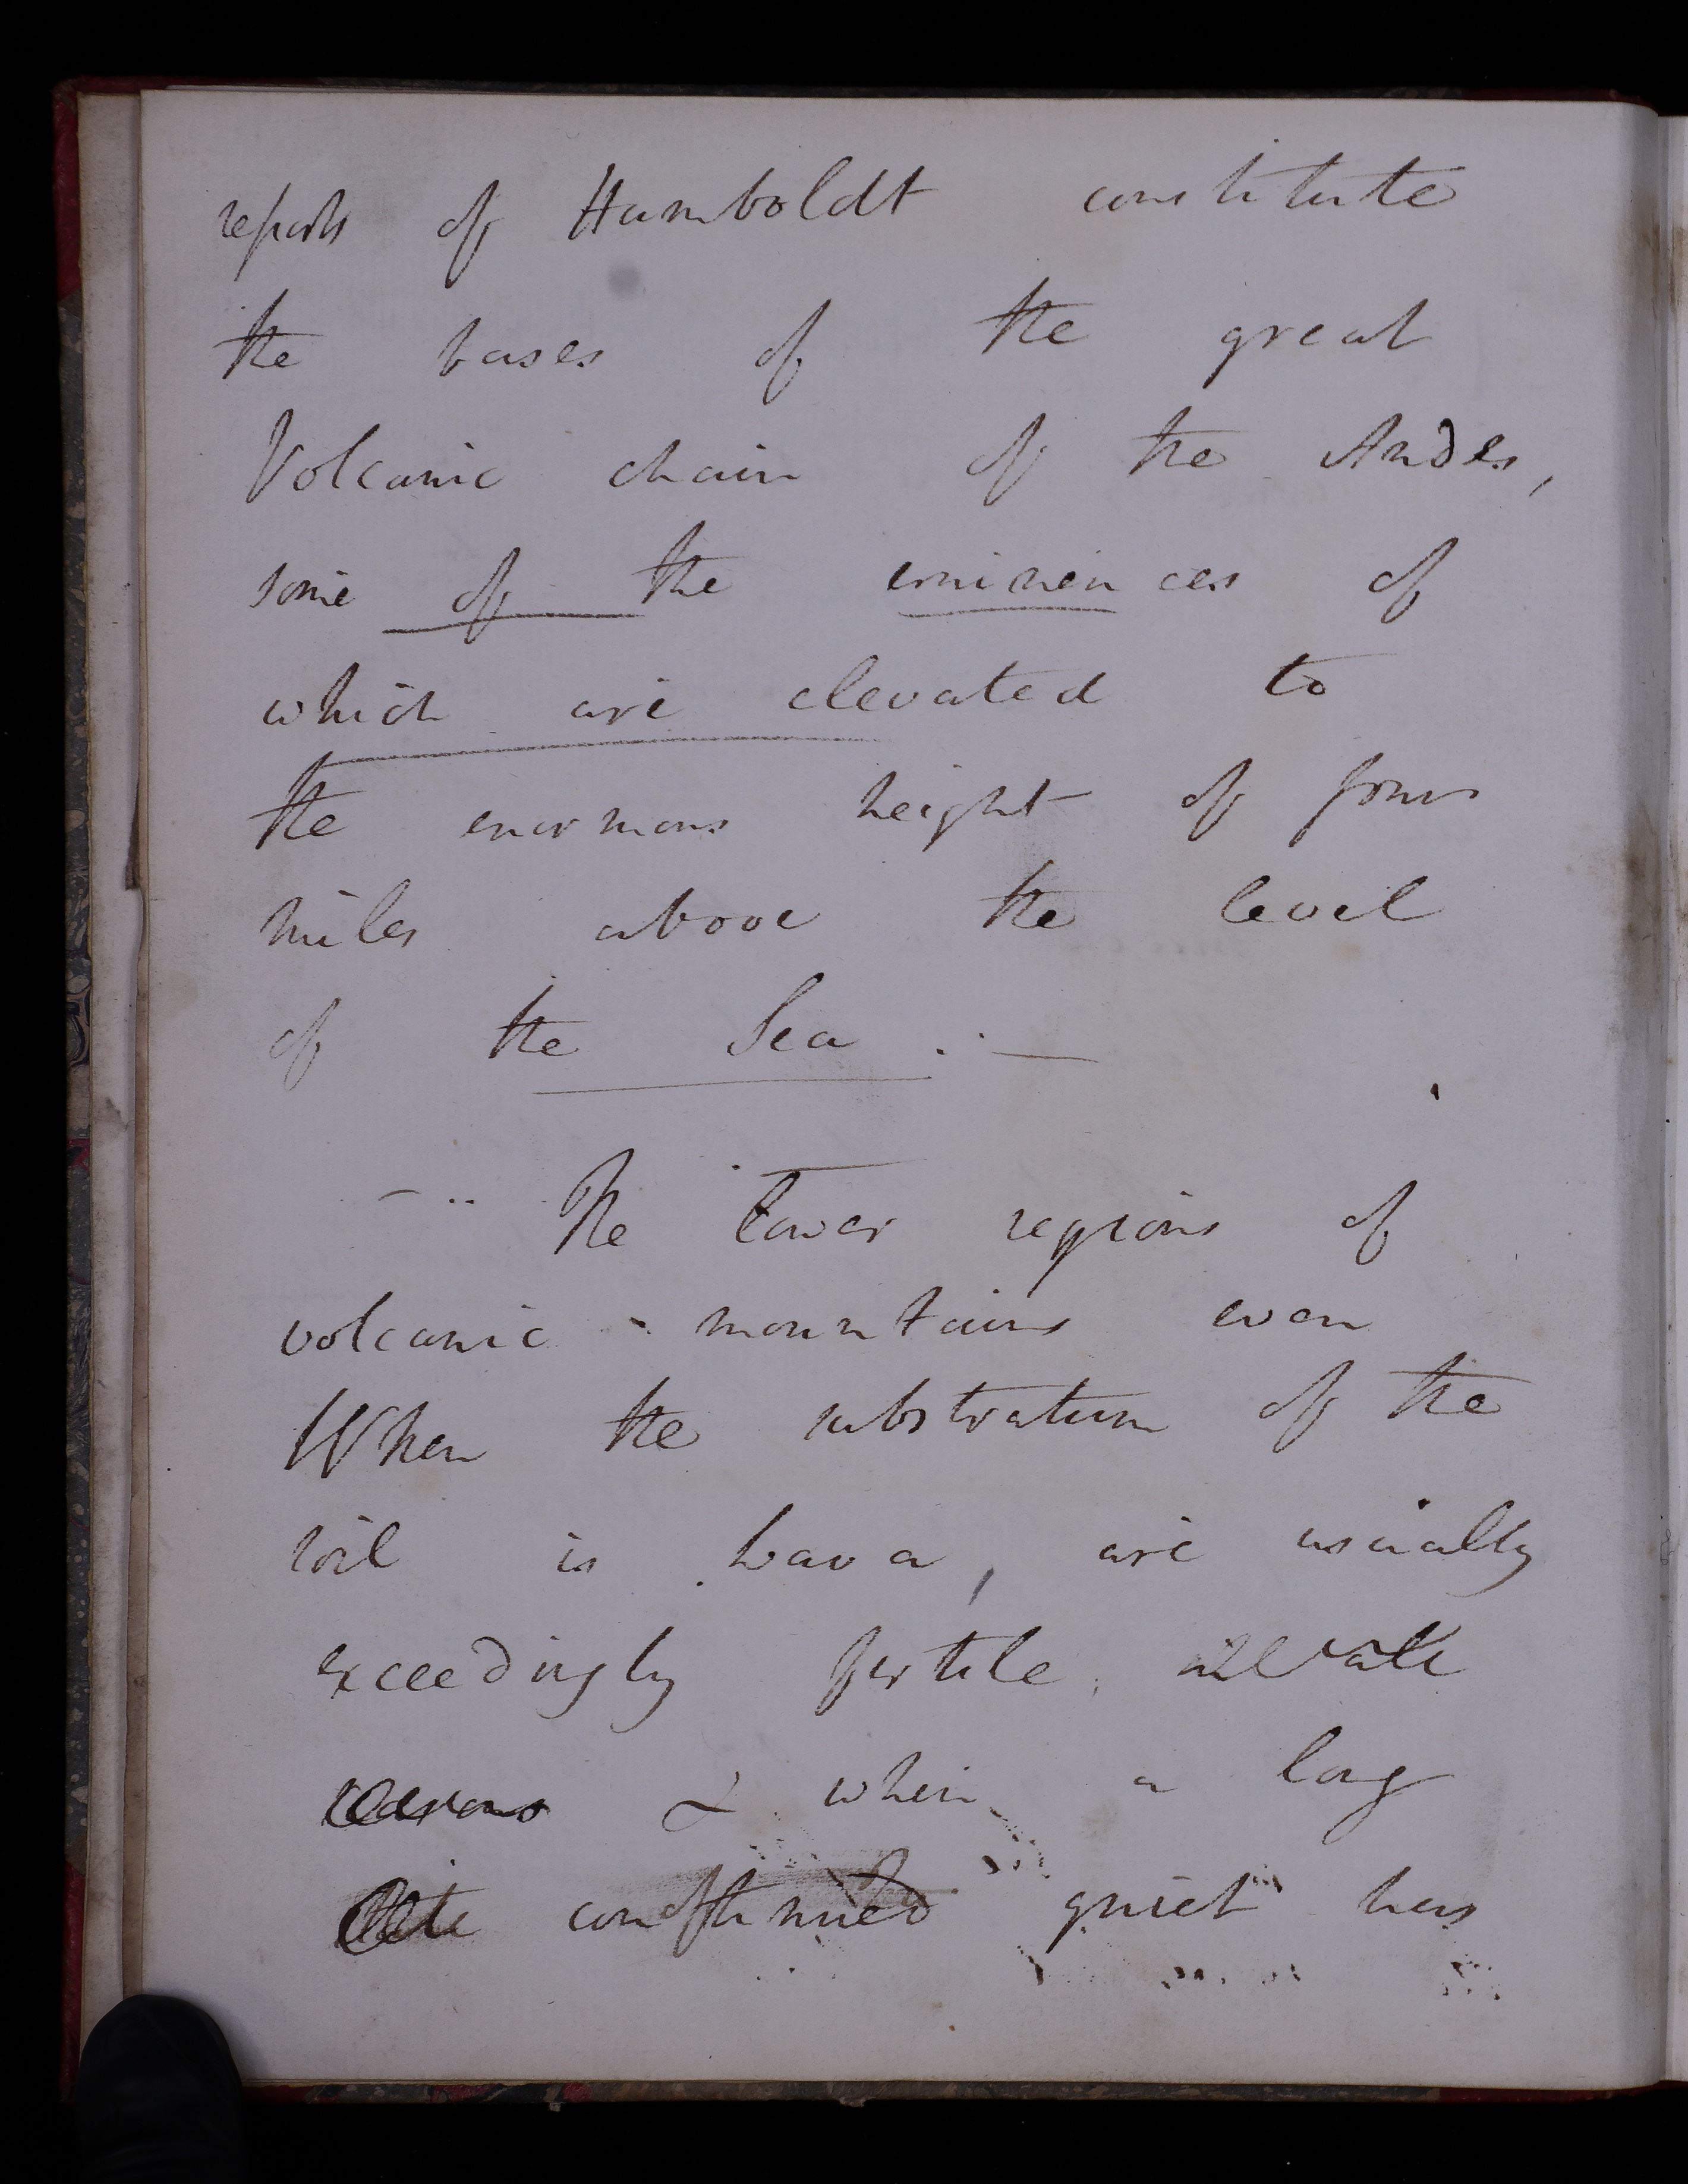 reports of Humboldt constitute
the bases of the great
Volcanic chain of the Andes,
some of the eminences of
which are elevated to
the enormous height of four
miles above the level
of the Sea . —
— .. The lower regions of
volcanic - mountains even
When the substratum of the
soil is lava, are usually
exceedingly fertile,
& when a long
continued quiet has